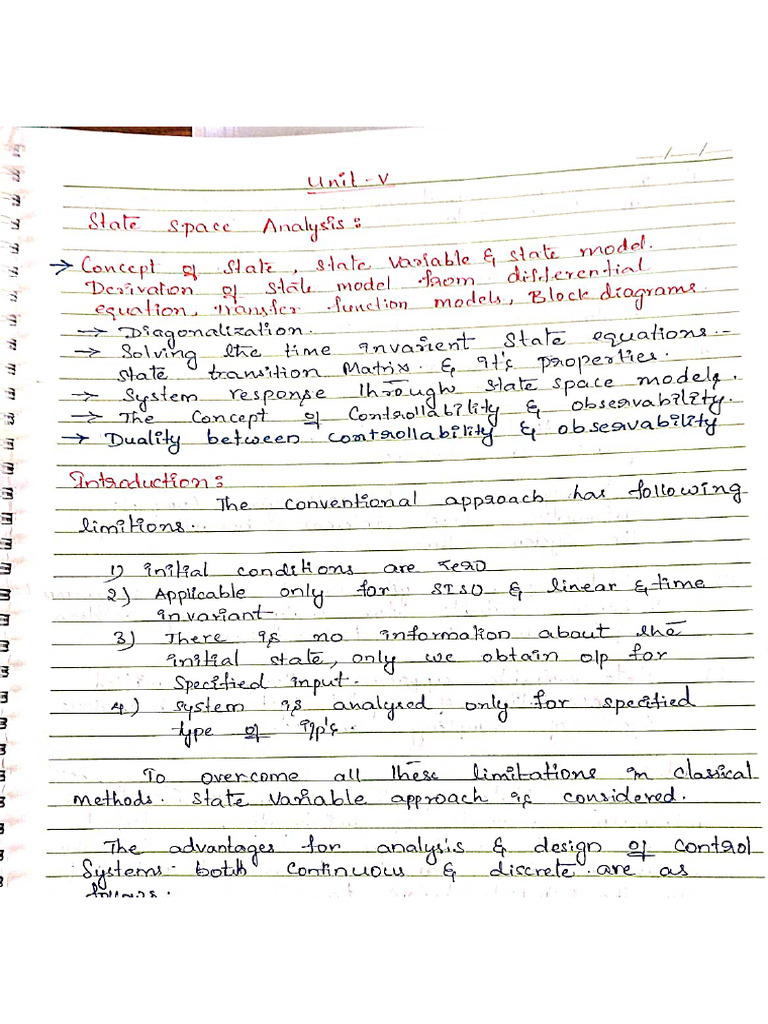 Unit-V
State Space Analysis:
→ Concept of State, State Variable & state model.
Derivation of state model from differential
equation, transfer function models, Block diagrams.
→ Diagonalization.
→ Solving the time invarient State equations.-
state transition Matrix. & it's properties.
→ System response through state space models.
→ The Concept of Controllability & observability.
→ Duality between controllability & observability
Introduction:
The conventional approach has following
limitions.
1) initial conditions are zero
2) Applicable only for SISO & linear & time
invariant.
3) There is no information about the
initial state, only we obtain o/p for
Specified input.
4.) System is analysed only for specified
type of i/p's.
To overcome all these limitations in classical
methods. State Variable approach is considered.
The advantages for analysis & design of control
Systems both continuous & discrete are as